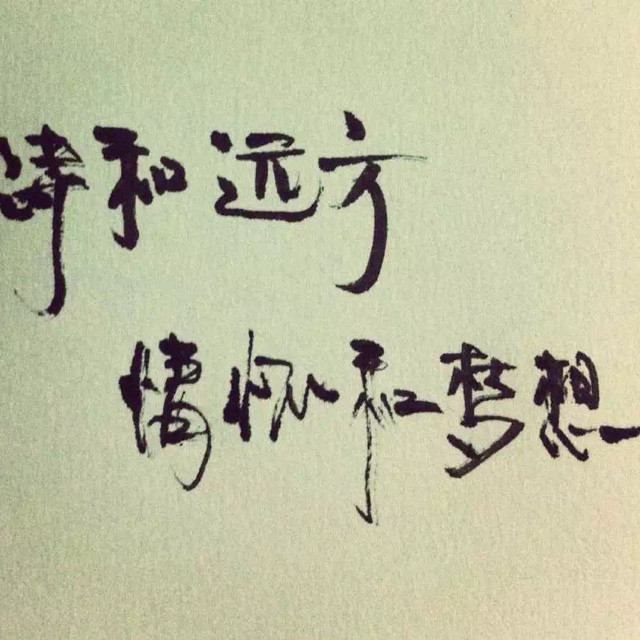 诗和远方
情怀和梦想